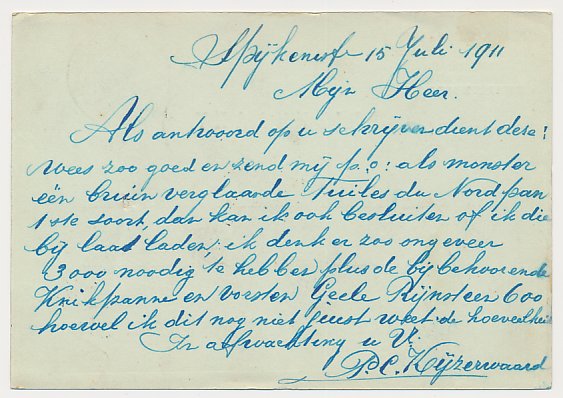 Spijkenisse 15 Juli 1911
Mijn Heer.
Als antwoord op u schrijven dient deze:
wees zoo goed en zend mij p.o: als monster
één bruin verglaasde Tuiles du Nord pan
1ste soort, dan kan ik ook besluiten of ik die
bij laat laden, ik denk er zoo ongeveer
3000 noodig te hebben plus de bijbehoorende
Knikpanne en vorsten Geele Rijnsteen 600
hoewel ik dit nog niet juist weet de hoeveelheid
In afwachting u V.
P.C. Kijzerwaard